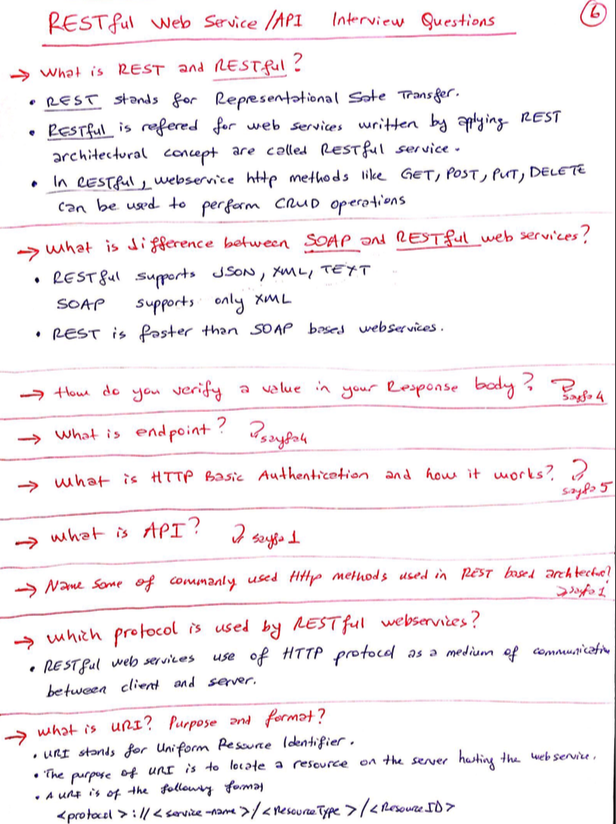 RESTful Web Service/API Interview Questions
6
→ What is REST and RESTful?
• REST stands for Representational Sate Transfer.
• RESTful is refered for web services written by applying REST
architectural concept are called RESTful service.
• In RESTful, webservice http methods like GET, POST, PUT, DELETE
can be used to perform CRUD operations
→ What is difference between SOAP and RESTful web services?
• RESTful supports JSON, XML, TEXT
SOAP supports only XML
• REST is faster than SOAP based webservices.
→ How do you verify a value in your Response body?
sayfa 4
→ What is endpoint? sayfa 4
→ What is HTTP Basic Authentication and how it works?
sayfa 5
→ What is API? sayfa 1
→ Name some of commanly used Http methods used in REST based archtectue?
sayfa 1
→ Which protocol is used by RESTful webservices?
• RESTful web services use of HTTP protocol as a medium of communication
between client and server.
→ What is URI? Purpose and format?
• URI stands for Uniform Resource Identifier.
• The purpose of URI is to locate a resource on the server hosting the web service.
• A URI is of the following format
<protocol>://<service-name>/<ResourceType>/<ResourceID>